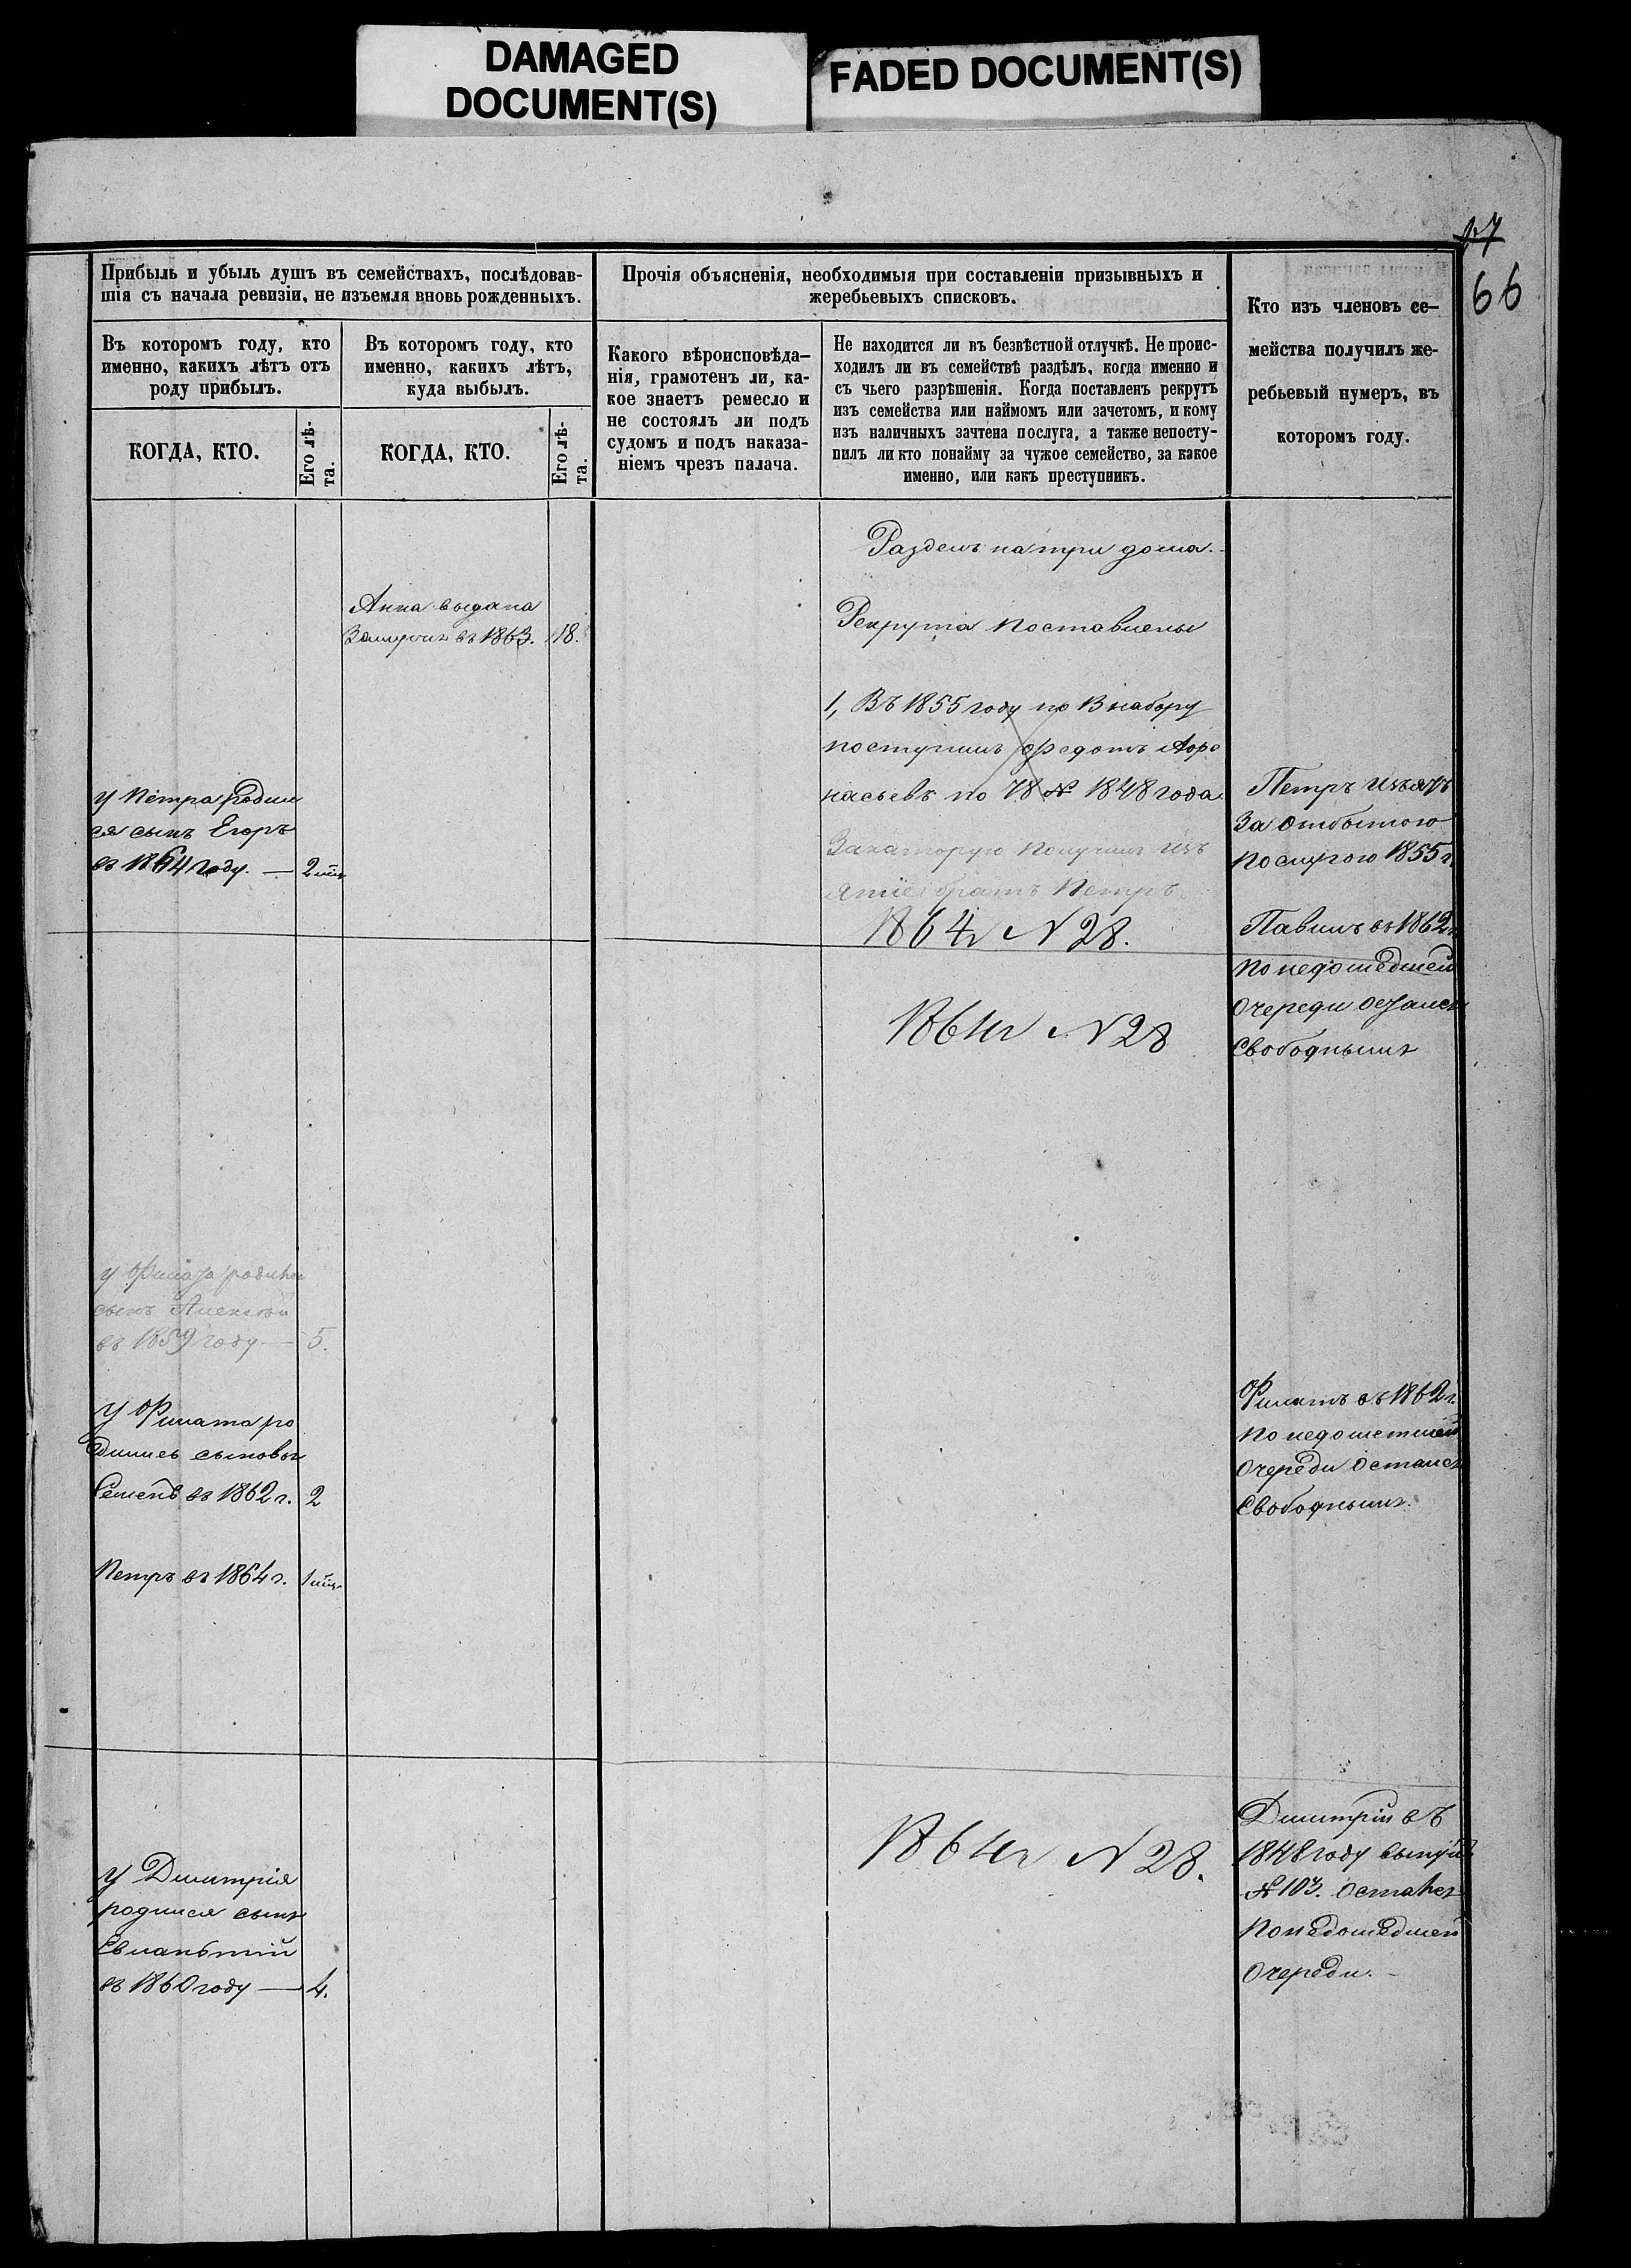 DAMAGED
DOCUMENT(S)
FADED DOCUMENT(S)
17
66
Прибыль и убыль душъ въ семействахъ, послѣдовав-
шія съ начала ревизіи, не изъемля вновь рожденныхъ.
Въ которомъ году, кто
именно, какихъ лѣтъ отъ
роду прибылъ.
Въ которомъ году, кто
именно, какихъ лѣтъ,
куда выбылъ.
КОГДА, КТО.
Его лѣ-
та.
КОГДА, КТО.
Его лѣ-
та.
Прочія объясненія, необходимыя при составленіи призывныхъ и
жеребьевыхъ списковъ.
Какого вѣроисповѣда-
нія, грамотенъ ли, ка-
кое знаетъ ремесло и
не состоялъ ли подъ
судомъ и подъ наказа-
ніемъ чрезъ палача.
Не находится ли въ безвѣстной отлучкѣ. Не проис-
ходилъ ли въ семействѣ раздѣлъ, когда именно и
съ чьего разрѣшенія. Когда поставленъ рекрутъ
изъ семейства или наймомъ или зачетомъ, и кому
изъ наличныхъ зачтена послуга, а также непосту-
пилъ ли кто понайму за чужое семейство, за какое
именно, или какъ преступникъ.
Кто изъ членовъ се-
мейства получилъ же-
ребьевый нумеръ, въ
которомъ году.
У Петра родил
ся сынъ Егоръ
въ 1864 году. — 2
У родился
сынъ Алексѣй
въ 1859 году — 5.
У Филата ро
дились сыновья
Семенъ въ 1862 г. 2
Петръ въ 1864 г. 1
У Димитрія
родился сынъ
Евлампій
въ 1860 году — 4.
Анна выдана
Замужъ въ 1863. 18.
Разделъ на три дома.
Рекрута поставлены
1, Въ 1855 году по В набору
поступилъ Федотъ Афо
насьевъ по 78 № 1848 года
Закаторую получилъ изъ
ятіе братъ Петръ
1864 г N 28.
1864 г N 28
1864 г N 28.
Петръ изъятъ
За отбытою
послугою 1855 г
Павилъ въ 1862 г
по недошедшей
очереди осталсъ
Свободнымъ
Филатъ въ 1862 г.
по недошетшей
очереди осталсъ
Свободнымъ.
Димитрій въ
1848 году вынулъ
№ 103. осталсъ
Понедошедшей
Очереди.